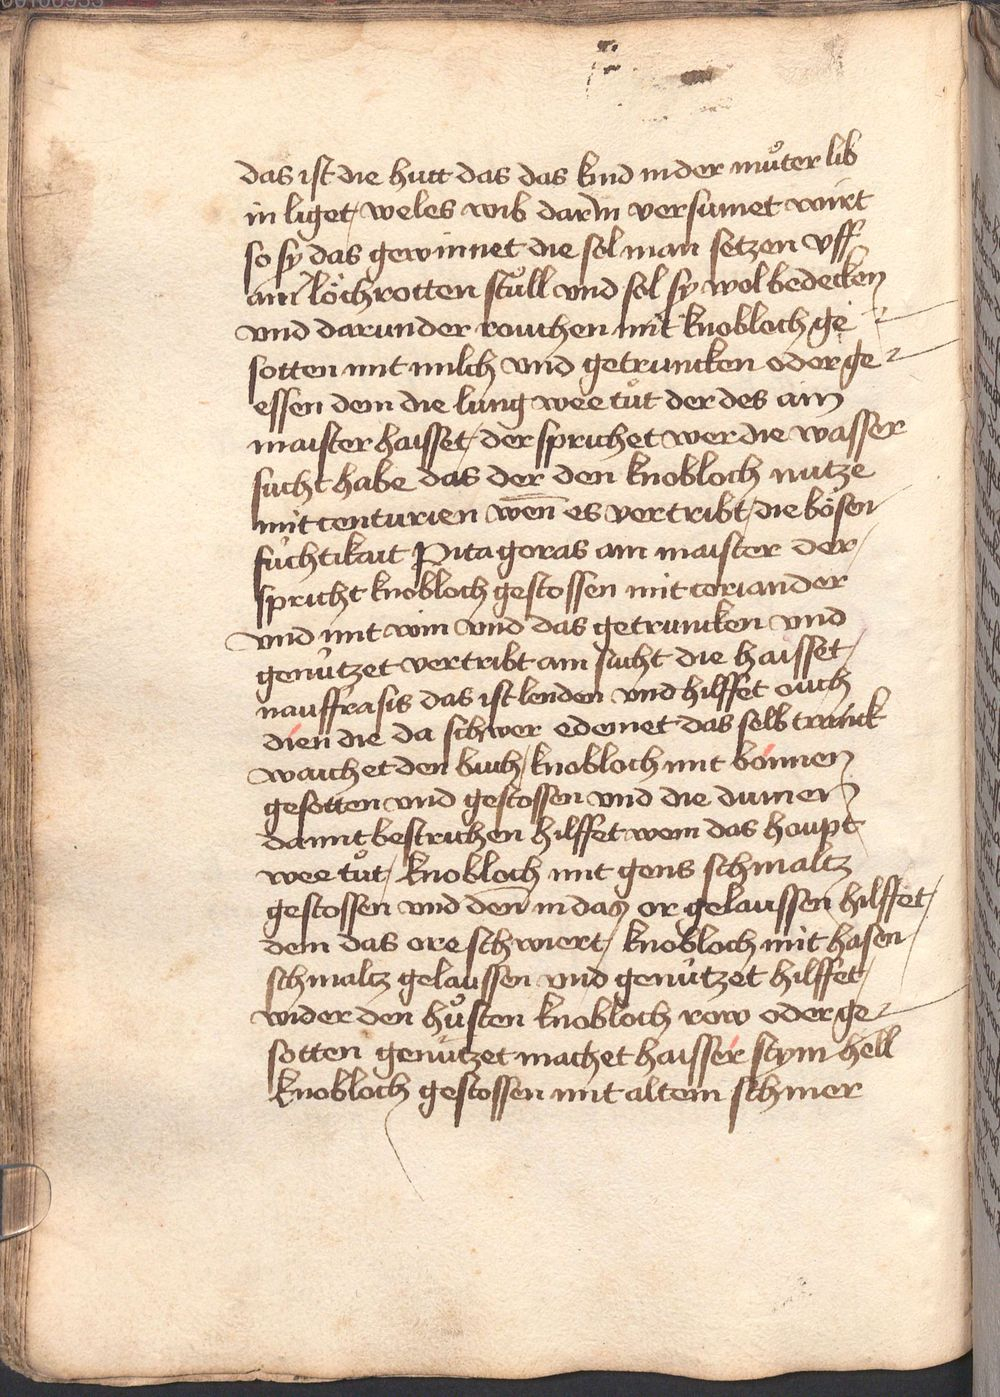 das ist die hutt das das kind in der muͦter lib
in liget / weles wib darin versumet wirt
so sy das gewinnet die sol man setzen vff
ain löchrotten stuͦll vnd sol sy wol bedecken
vnd darunder rouchen mit knobloch ge
sotten mit milch vnd getruncken oder ge
essen dem die lung wee tuͦt der des ain
maister haisset / der sprichet wer die wasser
sucht habe das der den knobloch nutze
mit centurien wen̄ es vertribt / die bösen
füchtikait Pitagoras ain maister der /
spricht knobloch gestossen mit coriander
vnd mit win vnd das getruncken vnd
genützet vertribt ain sucht die haisset /
nauffrasis das ist lenden vnd hilffet ouch
dien die da schwer edemet das selb tranck
waichet den buch / knobloch mit bonnen
gesotten vnd gestossen vnd die dumen
damit bestrichen hilffet wem das houpt
wee tuͦt / knobloch mit gens schmaltz
gestossen vnd den̄ in das or gelaussen hilffet /
dem das ore schwiert / knobloch mit hasen
schmaltz gelaussen vnd genützet hilffet /
wider den huͦsten knobloch row oder ge
sotten genützet machet haisser stym hell
knobloch gestossen mit altem schmer